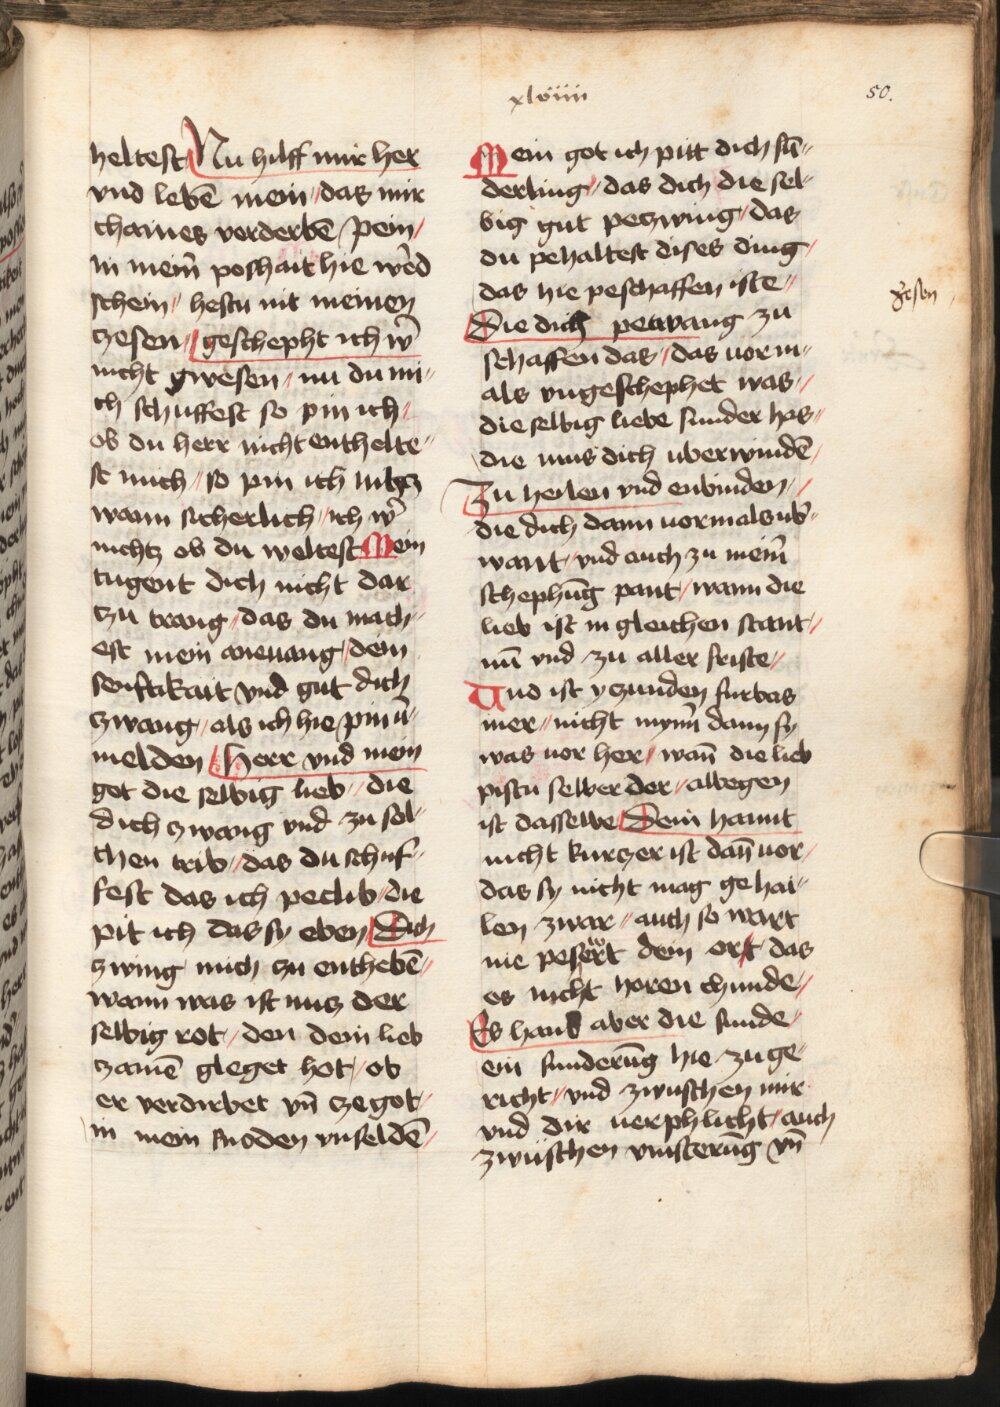 xlviiii
50.
heltest Nu hilff mir her
vnd lebē mein / das mir
chaines verderbē / pein /
in meim̄ poshait hie w̄ed
schein / hestu nit meinen
zesen / geschepht ich w̄
nicht gwesen / nu du mi /
ch schuffest so pin ich /
ob du herr nicht enthelte /
st mich / so pin ich nihtz
wann sicherlich / ich w̄
nichtz ob du weltest Mein
tugent dich nicht dar
zu twang / das du mach /
est mein anevang / dem
senftikait vnd gut dich
zwang / als ich hie pin v̄ /
melden / Herr vnd mein
got die selbig lieb / die
dich zwang vnd zu sol /
chen trib / das du schuf /
fest das ich peclib / die
pit ich das sy eben / Dich
zwing mich zu enthebē /
wann was ist nutz der
selbig rot / den dein lieb
zamē gleget hot / ob
er verdirbet vn̄ ze got /
in mein snoden vnseldē /
Mein got ich pitt dich sū /
derling / das dich die sel /
big gut petzwing / das
du pehaltest dises ding /
das hie peschaffen iste /
Die dich petwang zu
schaffen das / das vor ni /
als vngeschephet was /
die selbig liebe sunder has /
die mus dich uberwindē /
Zu heilen vnd enbinden /
die dich dann vormals ub̄ /
want / vnd auch zu meim̄
schephūg pant / wann die
lieb ist in gleichen stant /
nū vnd zu aller friste /
Und ist yczunden furbas
mer / nicht mynn̄ dann sy
was vor her / wan̄ die lieb
pistu selber der / albegen
ist dasselbe Dein hannt
nicht kurczer ist dan̄ vor /
das sy nicht mag gehai /
len zwar / auch so wart
nie peswert dein ort das
es nicht horen chunde /
Es hand aber die sunde /
ein sunderūg hie zu ge /
richt / vnd zwuschen mir
vnd dir verphlicht / auch
zwüschen vinsterūg vn̄